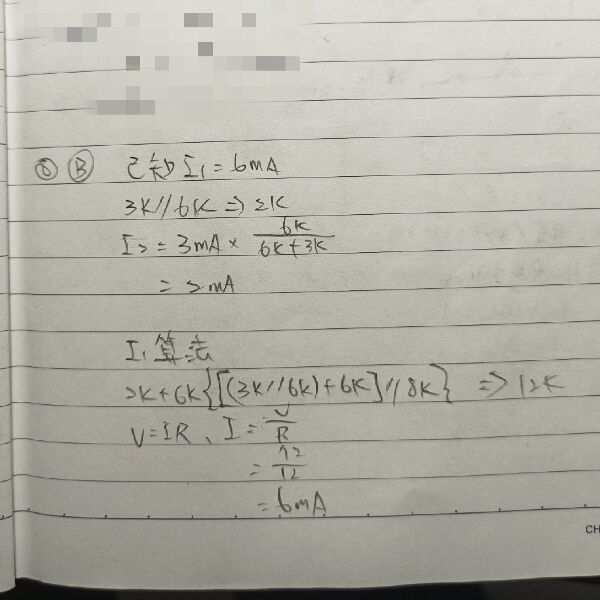 ⑧ Ⓑ 已知 I₁ = 6mA
3K//6K ⇒ 2K
I₂ = 3mA × 6K/(6K+3K)
= 2mA
I₁ 算法
2K+6K{[(3K//6K)+6K]//8K} ⇒ 12K
V=IR、I = V/R
= 72/12
= 6mA
CH